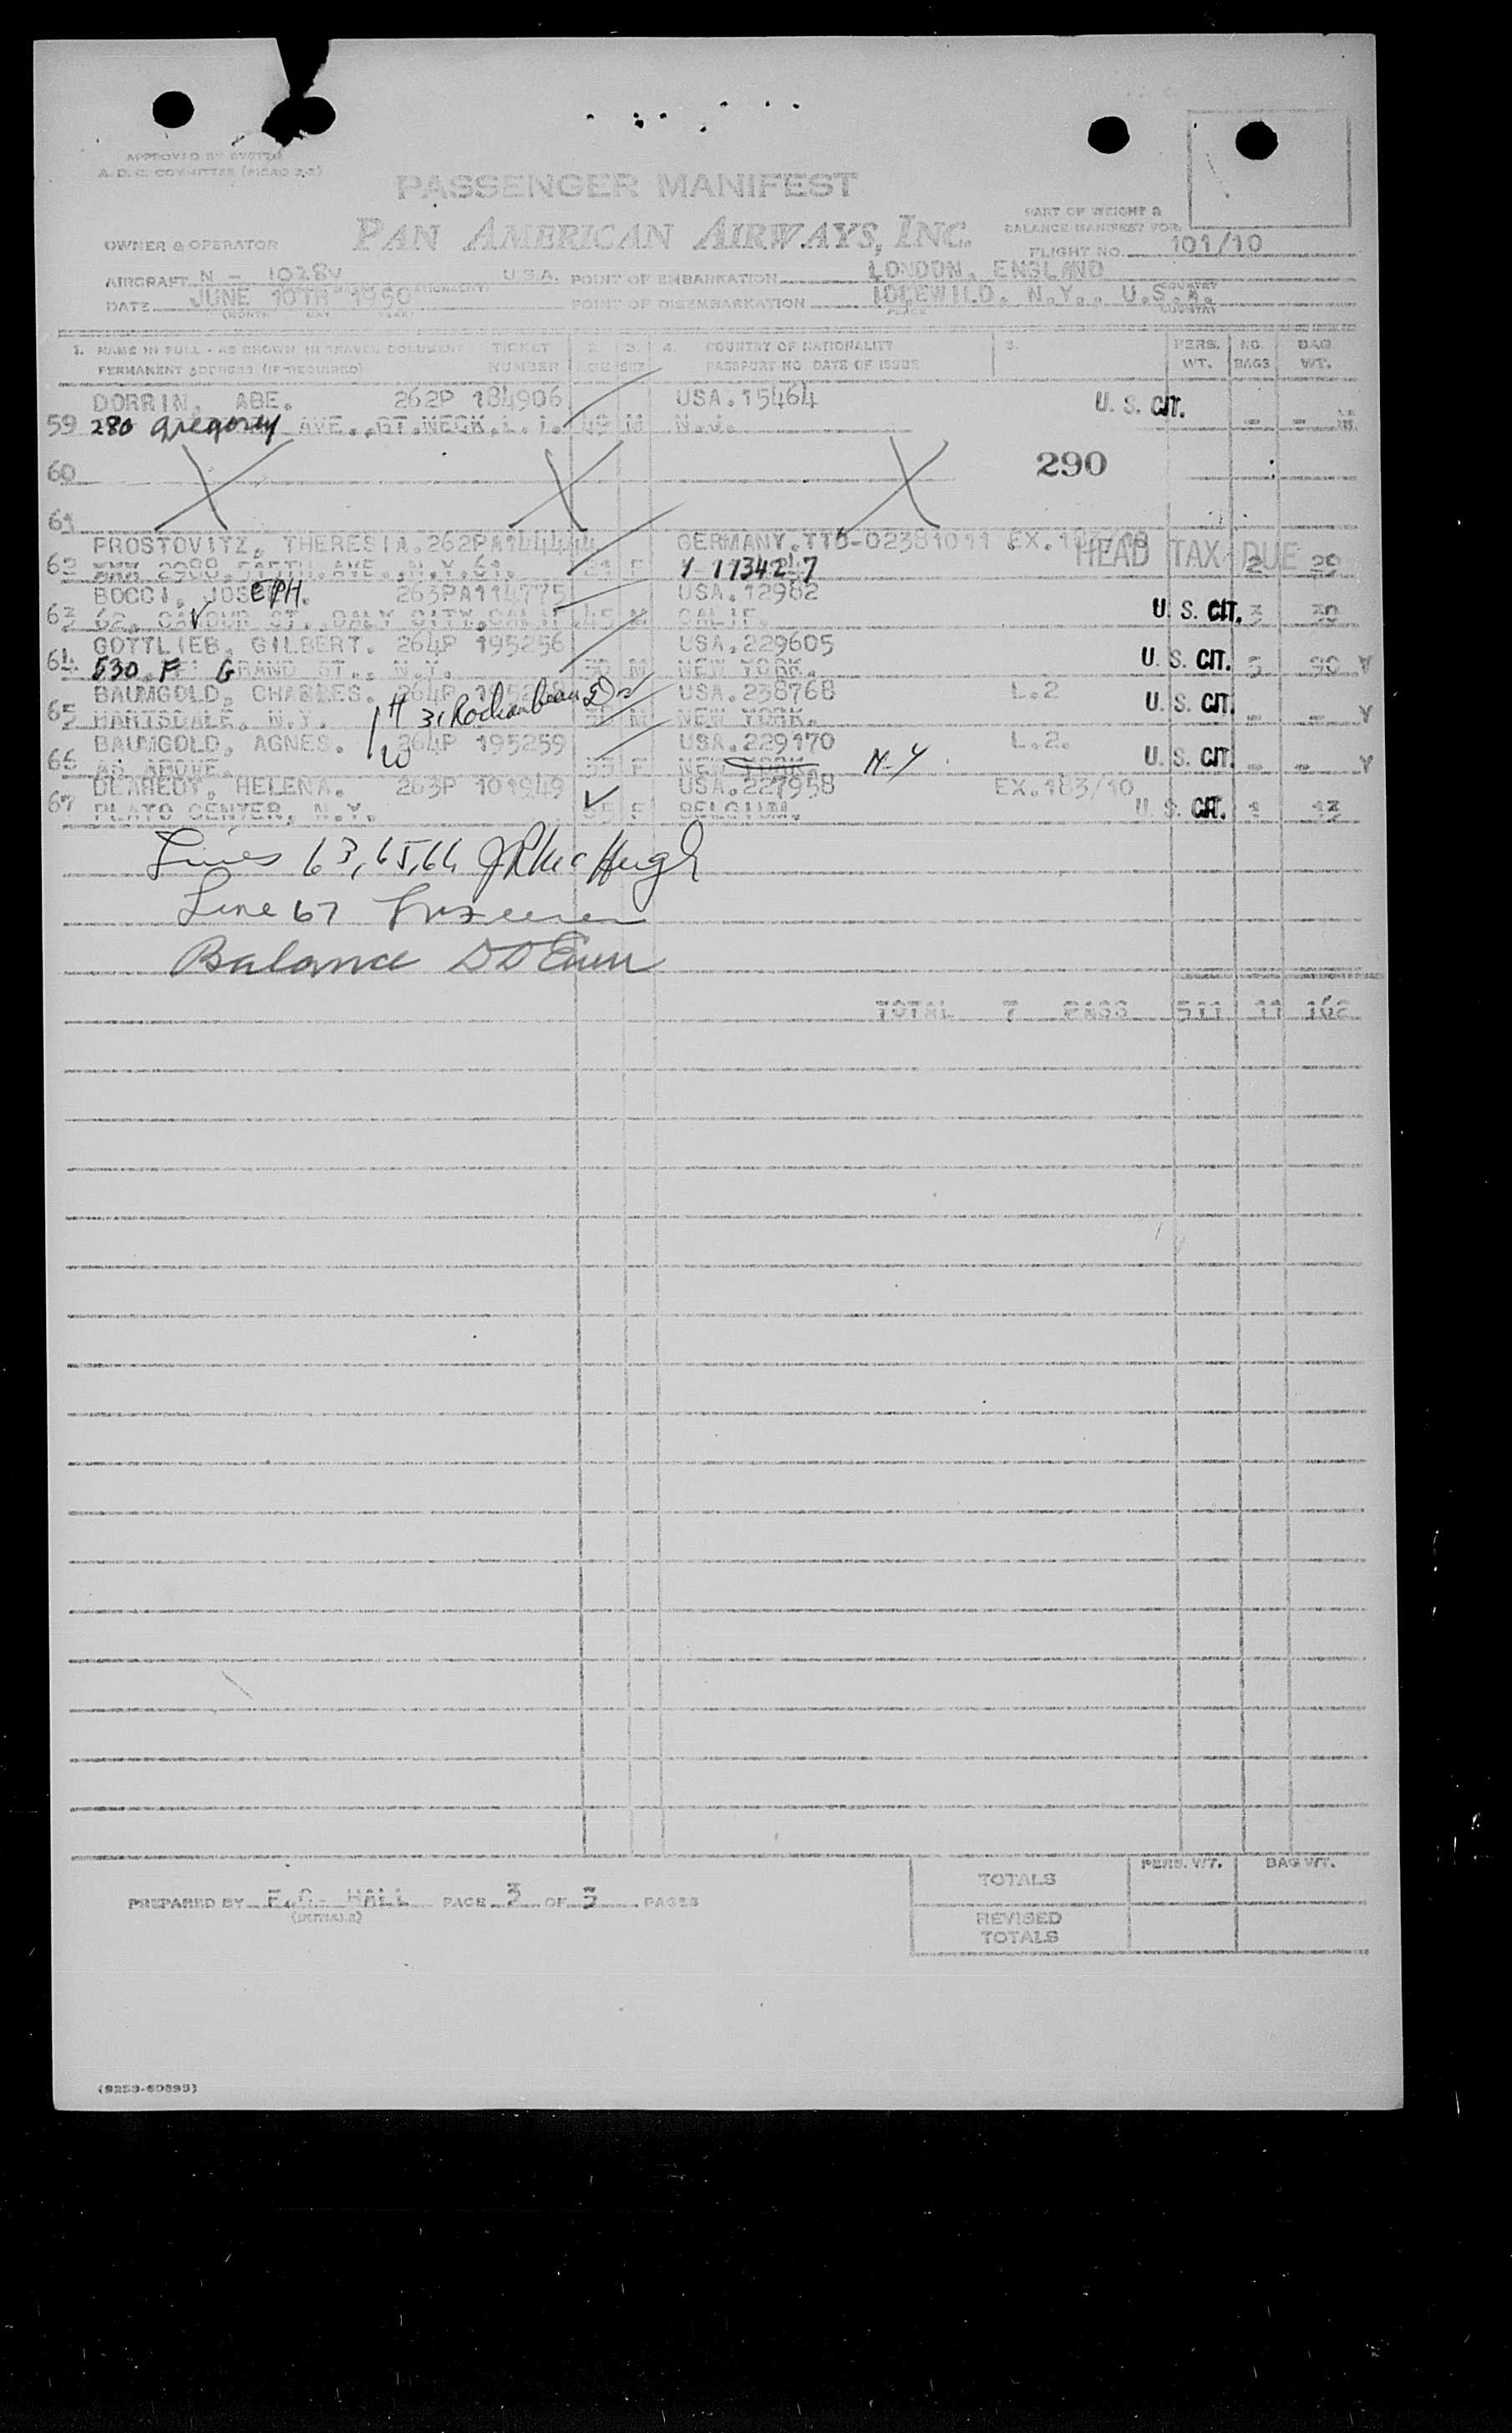 APPROVED BY SYSTEM
A. D. C. COMMITTEE (PICAO 2-2)
PASSENGER MANIFEST
PAN AMERICAN AIRWAYS, INC.
PART OF WEIGHT &
BALANCE MANIFEST FOR
OWNER & OPERATOR
FLIGHT NO. 101/10
AIRCRAFT N - 1028V U.S.A. POINT OF EMBARKATION LONDON, ENGLAND
DATE JUNE 10TH 1950 POINT OF DISEMBARKATION IDLEWILD. N.Y., U.S.A.
(MONTH DAY YEAR) PLACE COUNTRY
1. NAME IN FULL - AS SHOWN IN TRAVEL DOCUMENT TICKET 2. 3. 4. COUNTRY OF NATIONALITY 5. PERS. NO. BAG
PERMANENT ADDRESS (IF REQUIRED) NUMBER AGE SEX PASSPORT NO DATE OF ISSUE WT. BAGS WT.
DORRIN, ABE. 262P 184906 USA.15464 U. S. CIT.
59 280 Gregorey AVE.,GT.NECK,L.I. 49 M N.J. - -
60 290
61
PROSTOVITZ, THERESIA.262PA144444 GERMANY.TTD-02381011 HEAD TAX DUE
62 XXX 2988. FIFTH. AVE., N.Y.61. 21 F Y 1734247 2 29
BOCCI, JOSEPH. 263PA114775 USA.12982
63 62, CAVOUR ST., DALY CITY.CALIF 45 M CALIF. U. S. CIT. 3 30
GOTTLIEB, GILBERT. 264P 195256 USA.229605
64 530 F GRAND ST., N.Y. 30 M NEW YORK. U. S. CIT. 5 90 Y
BAUMGOLD, CHARLES. 264P USA.238768 L.2
65 HARTSDALE, N.Y. H 31 Rochambeau Dr M NEW YORK. U. S. CIT. - - Y
BAUMGOLD, AGNES. W 264P 195259 USA.229170 L.2.
66 AS ABOVE. 55 F NEW YORK. N-Y U. S. CIT. - - Y
HELENA. 263P 101949 USA.227958 EX.183/10
67 PLATO CENTER, N.Y. 55 F BELGIUM. U. S. CIT. 1 13
Lines 63, 65, 66 JR McHugh
Line 67
Balance
TOTAL 7 PASS 511 11 162
TOTALS PERS. WT. BAG WT.
PREPARED BY HALL PAGE 5 OF 5 PAGES
(INITIALS)
REVISED
TOTALS